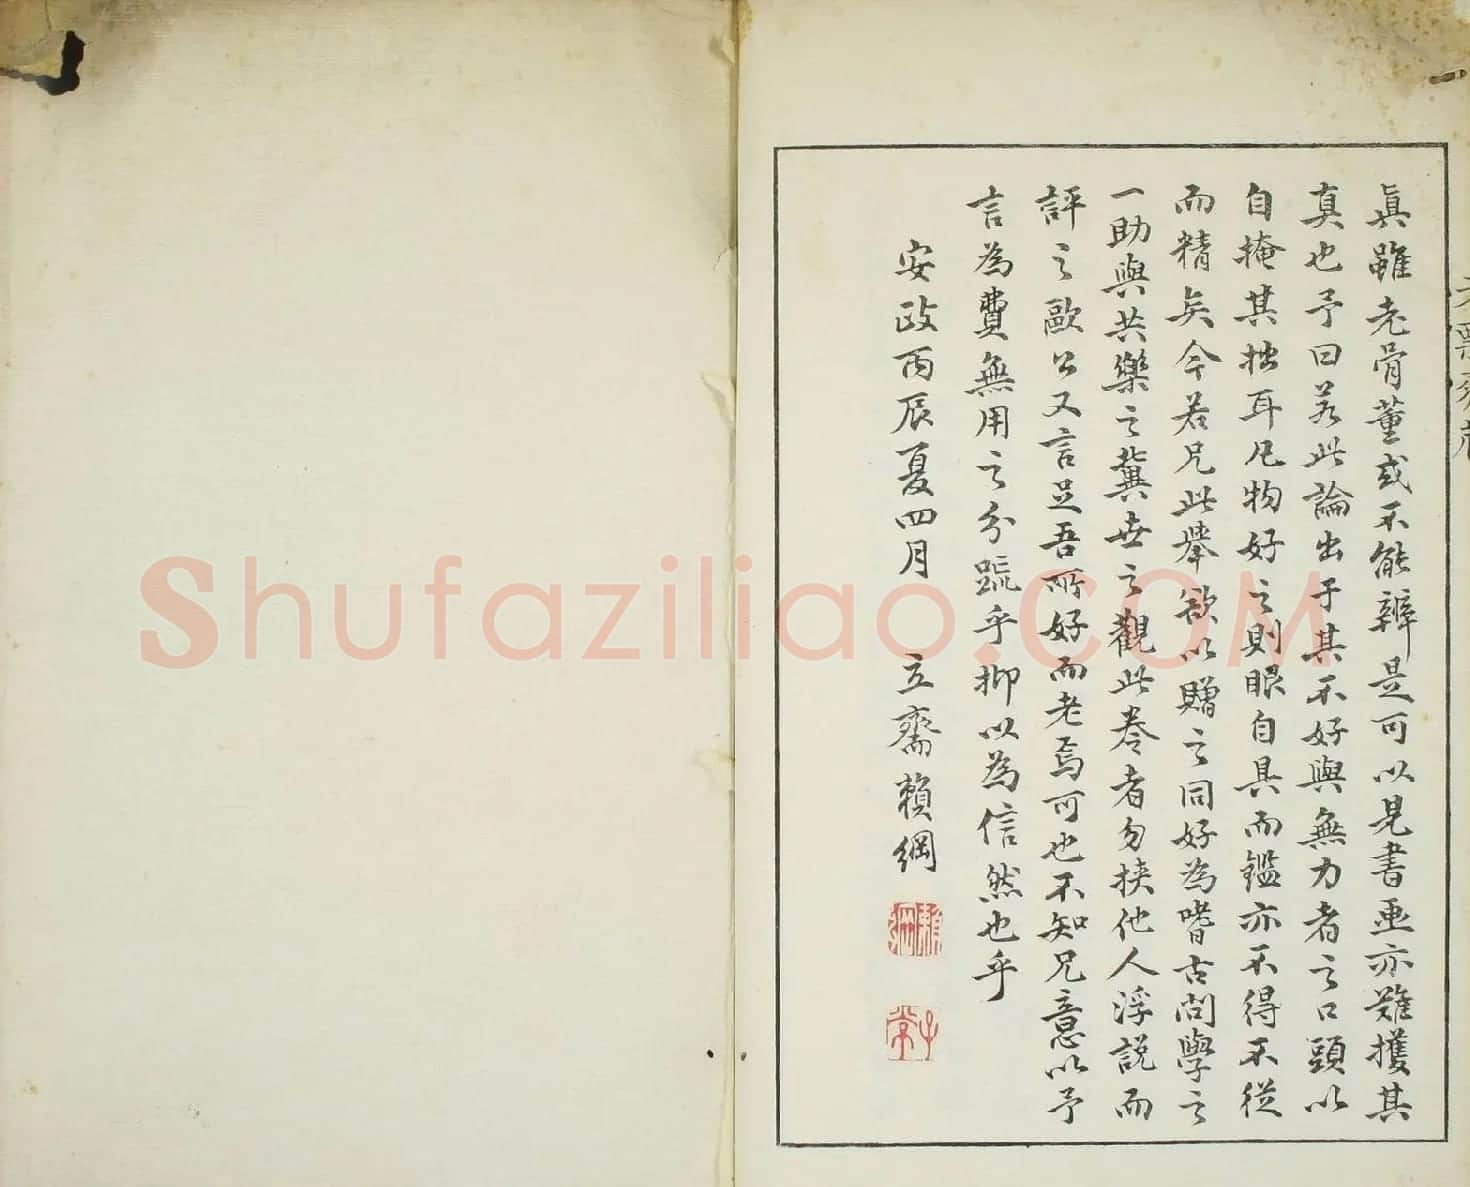 眞雖老骨董或不能辨是可以見書画亦難獲其
真也予曰若此論出于其不好與無力者之口頭以
自掩其拙耳凡物好之則眼自具而鑑亦不得不從
而精矣今若兄此舉欲以贈之同好為嗜古問學之
一助與共樂之冀世之觀此卷者勿挾他人浮説而
評之歐公又言足吾所好而老焉可也不知兄意以予
言為費無用之分疏乎抑以為信然也乎
安政丙辰夏四月　立齋賴綱
賴綱
子常
Shufaziliao.COM